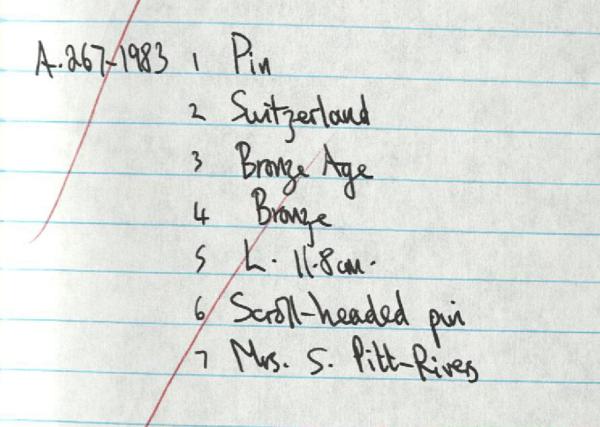 A.267-1983 1 Pin
2 Switzerland
3 Bronze Age
4 Bronze
5 L. 11.8cm.
6 Scroll-headed pin
7 Mrs. S. Pitt-Rivers